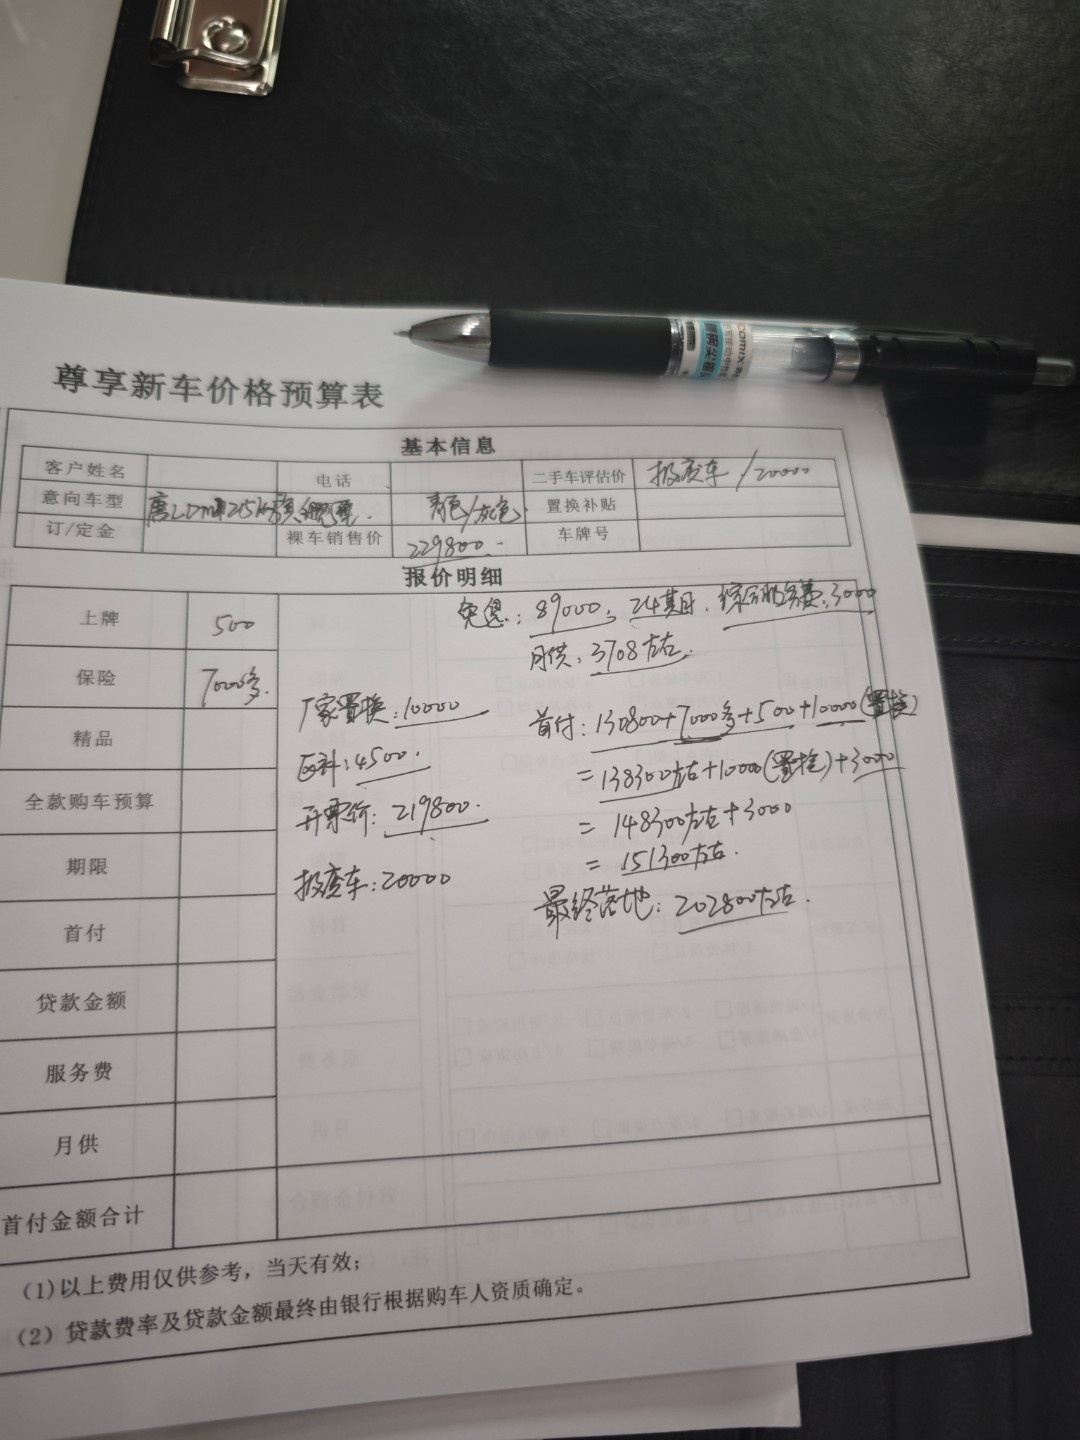 尊享新车价格预算表
基本信息
客户姓名 电话 二手车评估价 报废车/20000
意向车型 唐 青色/灰色 置换补贴
订/定金 裸车销售价 229800 车牌号
报价明细
上牌 500
保险 7000多
精品
全款购车预算
期限
首付
贷款金额
服务费
月供
首付金额合计
厂家置换:10000
区补:4500
开票价:219800
报废车:20000
免息:89000, 24期, 3000
月供:3708左右
首付:130800+7000多+500+10000(置换)
=138300左右+10000(置换)+3000
=148300左右+3000
=151300左右.
最终落地:202800左右.
(1)以上费用仅供参考，当天有效；
(2)贷款费率及贷款金额最终由银行根据购车人资质确定。
comix